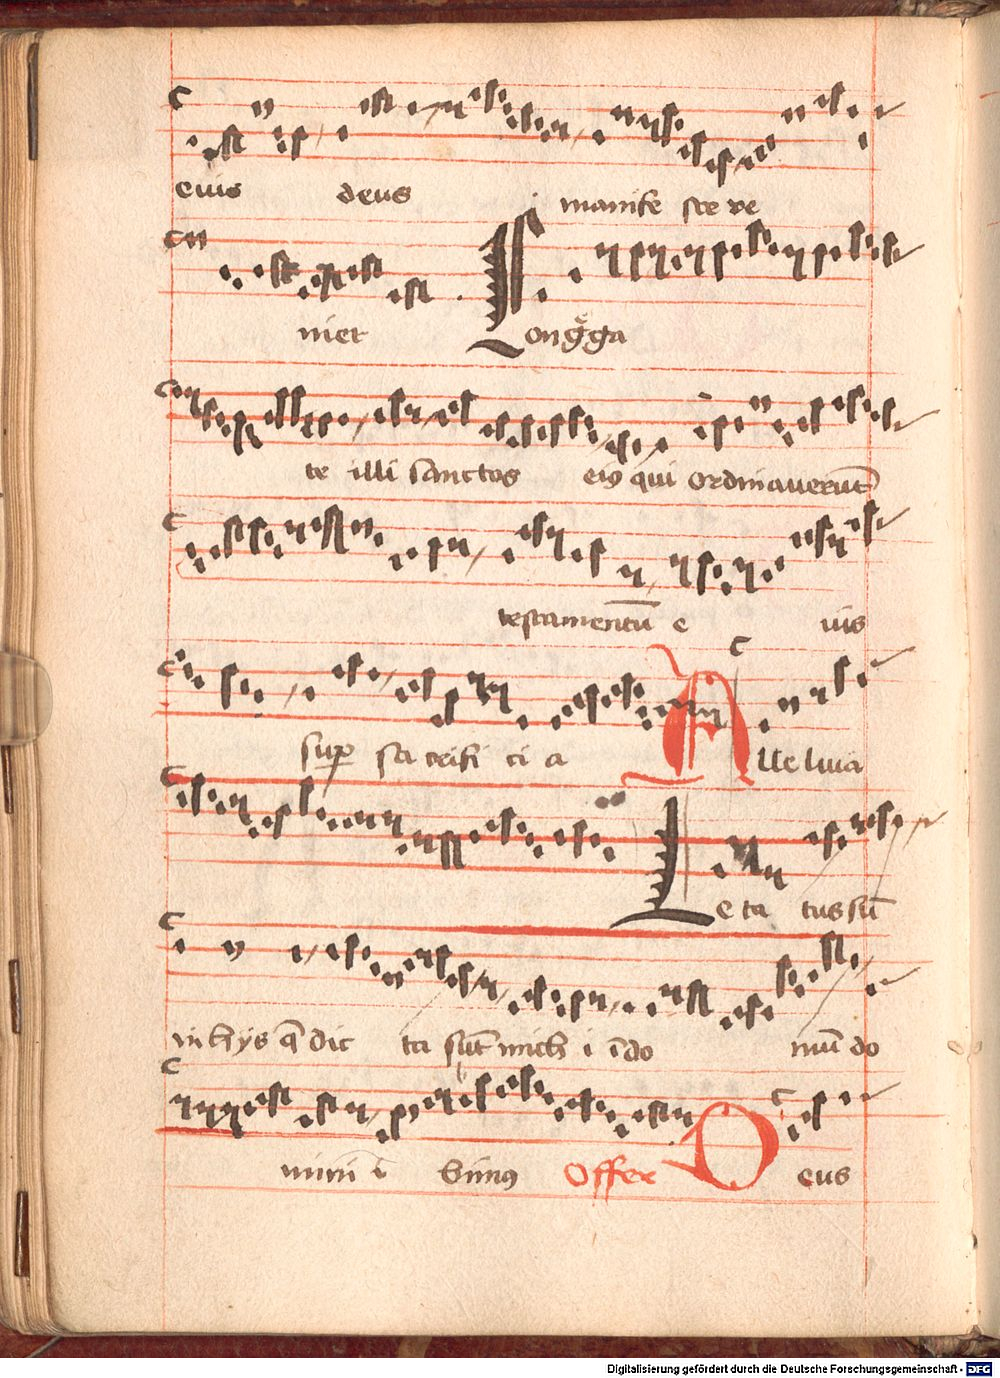 eius deus manife ste ve
niet Congͣga
te illi sanctos eiꝰ qui ordinaverūt
testamentū e ius
suꝑ sa crifi ci a Alleluia
Leta tus sū
in hys q̄ dic ta sūt mich i ī do
mū do
mini i bimꝰ Offer Deus
Digitalisierung gefördert durch die Deutsche Forschungsgemeinschaft - DFG